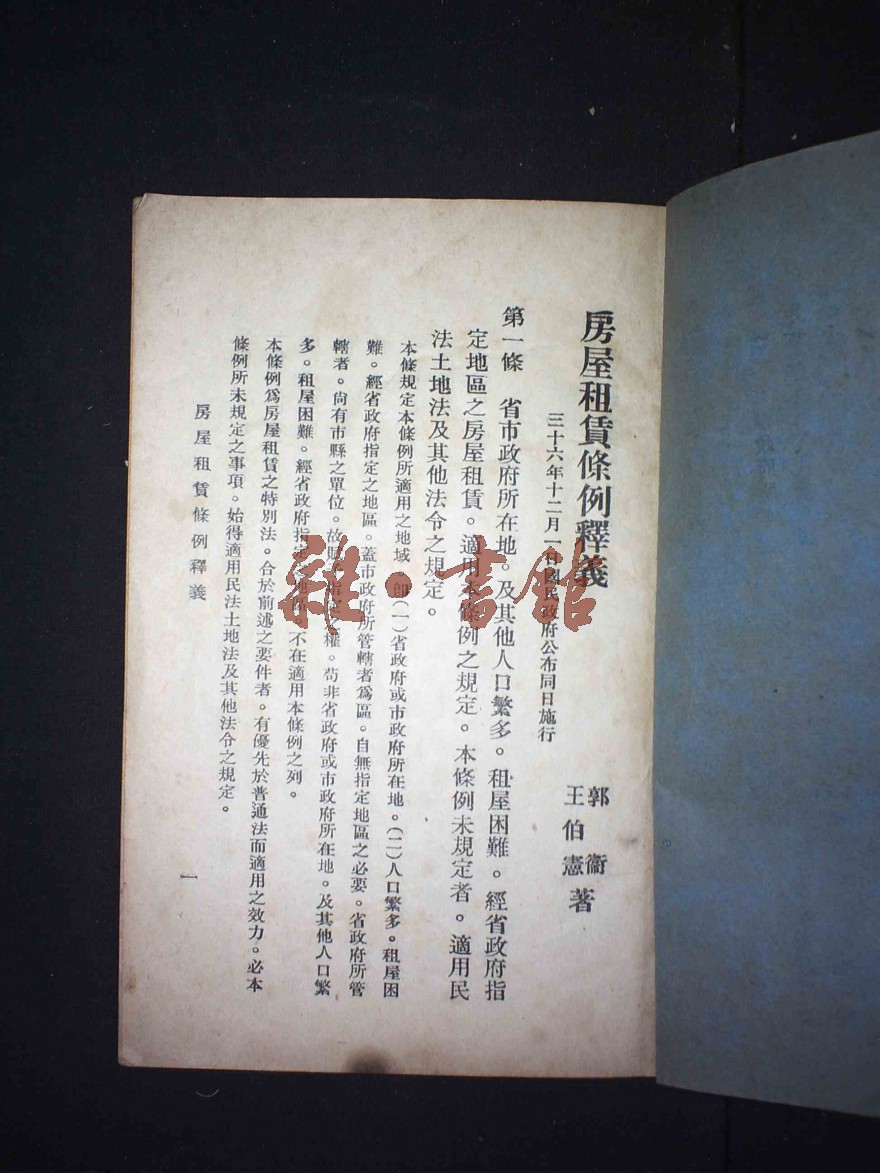 房屋租賃條例釋義
三十六年十二月一日國民政府公布同日施行
郭衞
王伯憲 著
第一條 省市政府所在地。及其他人口繁多。租屋困難。經省政府指
定地區之房屋租賃。適用本條例之規定。本條例未規定者。適用民
法土地法及其他法令之規定。
本條規定本條例所適用之地域 卽(一)省政府或市政府所在地。(二)人口繁多。租屋困
難。經省政府指定之地區。蓋市政府所管轄者爲區。自無指定地區之必要。省政府所管
轄者。尙有市縣之單位。故賦予指定之權。苟非省政府或市政府所在地。及其他人口繁
多。租屋困難。經省政府指定之地區。不在適用本條例之列。
本條例爲房屋租賃之特別法。合於前述之要件者。有優先於普通法而適用之效力。必本
條例所未規定之事項。始得適用民法土地法及其他法令之規定。
房屋租賃條例釋義
一
雜·書館